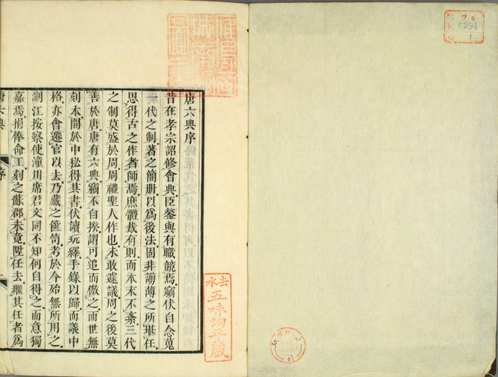 唐六典序
昔在孝宗詔修會典臣鏊與有職焉竊伏自念蒐
一代之制著之簡冊以爲後法固非謭薄之所堪任
思得古之作者師焉庶體裁有則而本末不紊三代
之制莫盛於周周禮聖人作也未敢遽議周之後莫
善於唐唐有六典竊不自揆謂可追而倣之而世無
刻本間於中祕得其書伏讀玩繹手錄以歸而議中
格亦會遷官以去乃藏之篋笥考於今殆無所用之
浙江按察使潼川席君文同不知何自得之而意獨
嘉焉捐俸命工刻之蘇郡未竟陞任去繼其任者爲
唐六典
序
五味均平藏